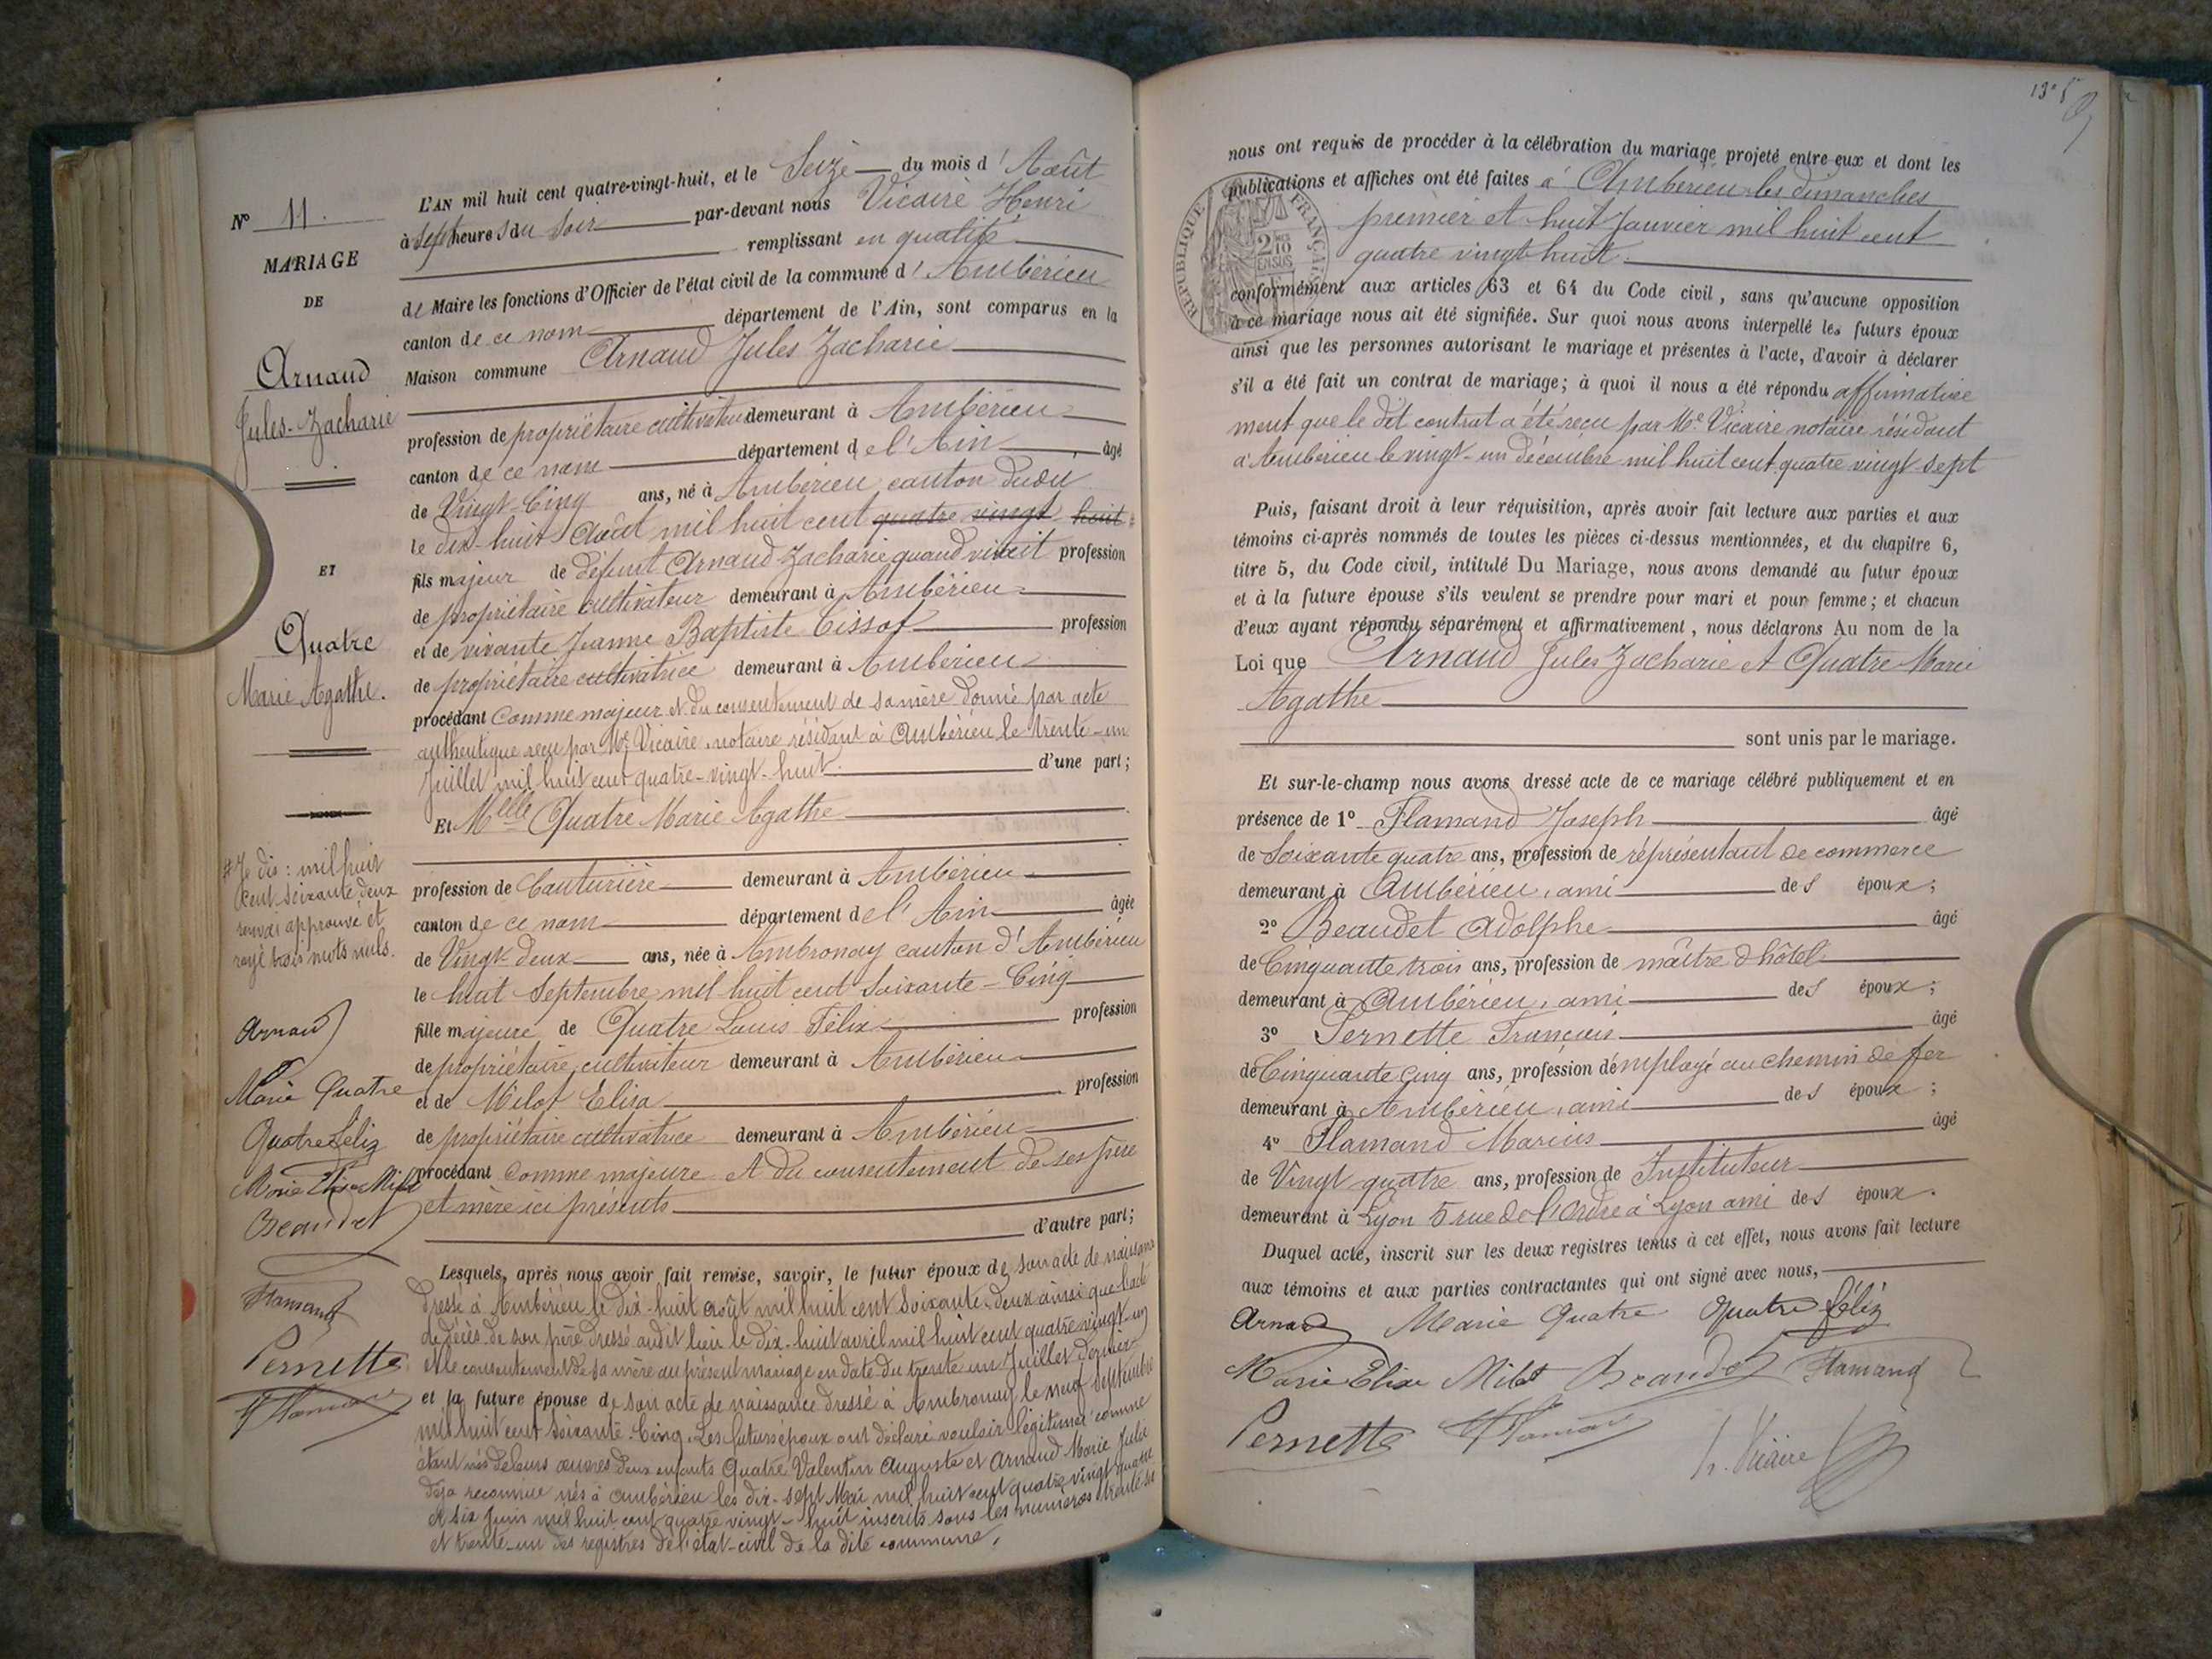 N° 11.
MARIAGE
DE
Arnaud
Jules-Zacharie
ET
Quatre
Marie Agathe.
# Je dis : mil huit
cent soixante deux
renvoi approuvé et
rayé trois mots nuls.
Arnaud
Marie Quatre
Quatre Félix
Marie Elise Milot
Beaudet
Flamand
Pernette
Flamand
L'AN mil huit cent quatre-vingt-huit, et le Seize du mois d'Août
à sept heures du soir par-devant nous Vicaire Henri
remplissant en qualité
de Maire les fonctions d'Officier de l'état civil de la commune d'Ambérieu
canton de ce nom département de l'Ain, sont comparus en la
Maison commune Arnaud Jules Zacharie
profession de propriétaire cultivateur demeurant à Ambérieu
canton de ce nom département de l'Ain âgé
de Vingt-Cinq ans, né à Ambérieu canton dudit
le dix-huit Août mil huit cent quatre vingt huit #
fils majeur de défunt Arnaud Zacharie quand vivait profession
de propriétaire cultivateur demeurant à Ambérieu
et de vivante Jeanne Baptiste Tissot profession
de propriétaire cultivatrice demeurant à Ambérieu
procédant comme majeur et du consentement de sa mère donné par acte
authentique reçu par Me Vicaire, notaire résidant à Ambérieu le trente-un
Juillet mil huit cent quatre-vingt-huit. d'une part;
Et Melle Quatre Marie Agathe
profession de Couturière demeurant à Ambérieu
canton de ce nom département de l'Ain âgée
de Vingt-deux ans, née à Ambronay canton d'Ambérieu
le huit Septembre mil huit cent soixante-Cinq
fille majeure de Quatre Louis Félix profession
de propriétaire cultivateur demeurant à Ambérieu
et de Milot Elisa profession
de propriétaire cultivatrice demeurant à Ambérieu
procédant comme majeure et du consentement de ses père
et mère ici présents
d'autre part;
Lesquels, après nous avoir fait remise, savoir, le futur époux de son acte de naissance
dressé à Ambérieu le dix-huit août mil huit cent soixante-deux ainsi que l'acte
de décès de son père dressé audit lieu le dix-huit avril mil huit cent quatre vingt-un
et le consentement de sa mère au présent mariage en date du trente un Juillet dernier
et la future épouse de son acte de naissance dressé à Ambronay le neuf Septembre
mil huit cent soixante-Cinq. Les futurs époux ont déclaré vouloir légitimer comme
étant nés de leurs œuvres deux enfants Quatre Valentin Auguste et Arnaud Marie Julie
déja reconnue nés à Ambérieu les dix-sept Mai mil huit cent quatre vingt quatre
et six Juin mil huit cent quatre vingt-huit inscrits sous les numéros trente
et trente-un des registres de l'état-civil de la dite commune.
nous ont requis de procéder à la célébration du mariage projeté entre eux et dont les
publications et affiches ont été faites à Ambérieu les dimanches
premier et huit Janvier mil huit cent
quatre vingt huit.
RÉPUBLIQUE FRANÇAISE
conformément aux articles 63 et 64 du Code civil, sans qu'aucune opposition
à ce mariage nous ait été signifiée. Sur quoi nous avons interpellé les futurs époux
ainsi que les personnes autorisant le mariage et présentes à l'acte, d'avoir à déclarer
s'il a été fait un contrat de mariage; à quoi il nous a été répondu affirmative
ment que le dit contrat a été reçu par Me Vicaire notaire résidant
à Ambérieu le vingt-un décembre mil huit cent quatre vingt sept
Puis, faisant droit à leur réquisition, après avoir fait lecture aux parties et aux
témoins ci-après nommés de toutes les pièces ci-dessus mentionnées, et du chapitre 6,
titre 5, du Code civil, intitulé Du Mariage, nous avons demandé au futur époux
et à la future épouse s'ils veulent se prendre pour mari et pour femme; et chacun
d'eux ayant répondu séparément et affirmativement, nous déclarons Au nom de la
Loi que Arnaud Jules Zacharie et Quatre Marie
Agathe
sont unis par le mariage.
Et sur-le-champ nous avons dressé acte de ce mariage célébré publiquement et en
présence de 1° Flamand Joseph âgé
de Soixante quatre ans, profession de réprésentant de commerce
demeurant à Ambérieu, ami des époux;
2° Beaudet Adolphe âgé
de Cinquante trois ans, profession de maître d'hôtel
demeurant à Ambérieu, ami des époux;
3° Pernette François âgé
de Cinquante Cinq ans, profession d'employé au chemin de fer
demeurant à Ambérieu, ami des époux;
4° Flamand Marius âgé
de Vingt quatre ans, profession de Instituteur
demeurant à Lyon 5 rue de l'Ordre à Lyon ami des époux.
Duquel acte, inscrit sur les deux registres tenus à cet effet, nous avons fait lecture
aux témoins et aux parties contractantes qui ont signé avec nous,
Arnaud Marie Quatre Quatre Félix
Marie Elise Milot Beaudet Flamand
Pernette Flamand
h. Vicaire